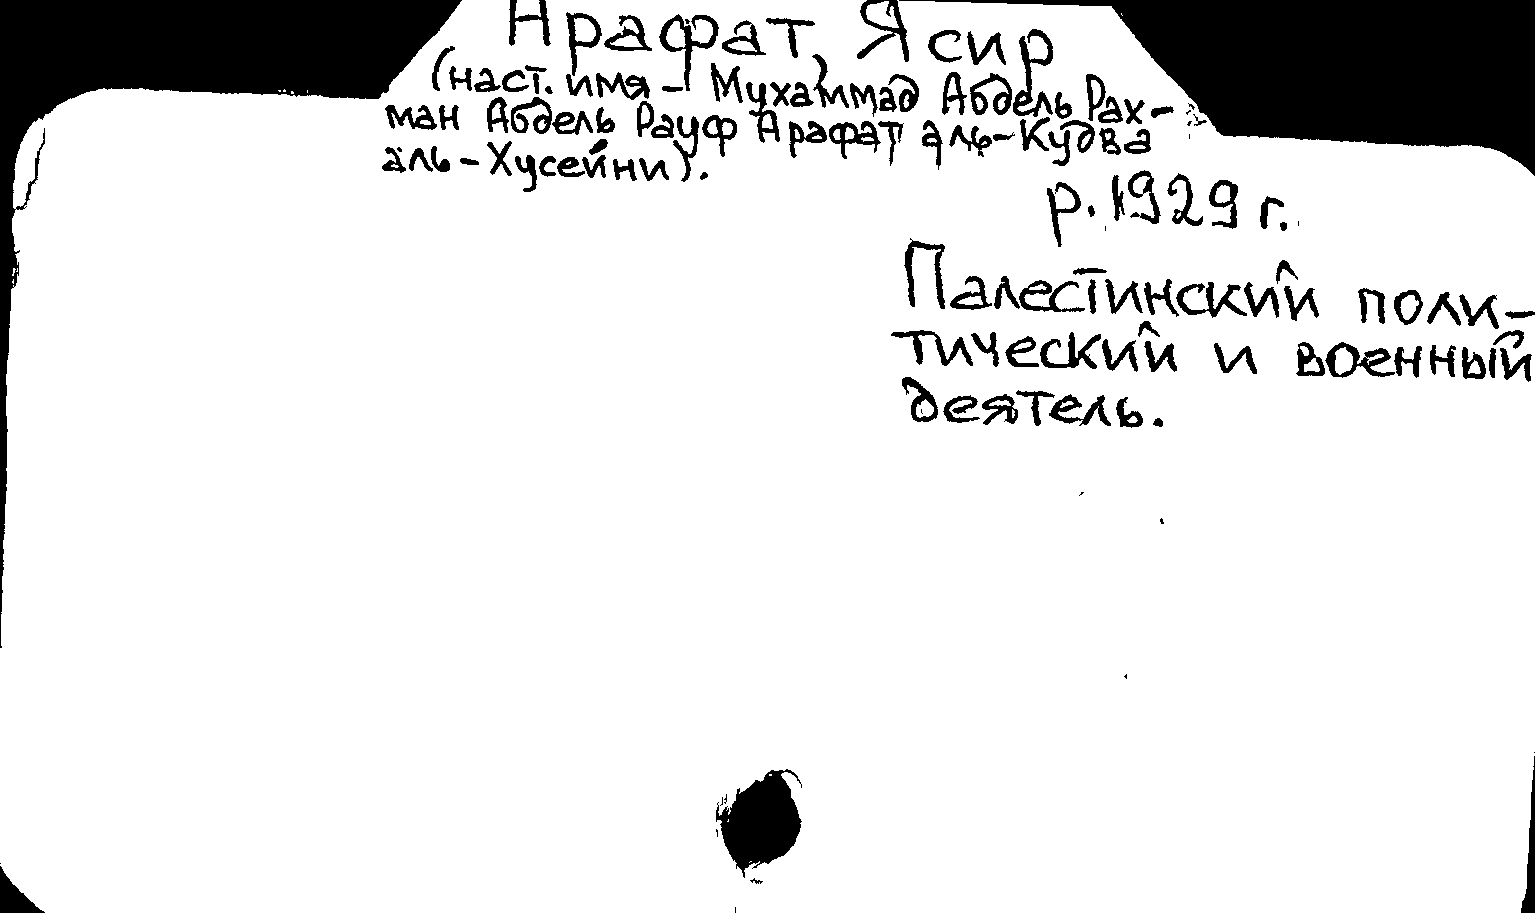 Арафат, Ясир
(наст. имя - Мухаммад Абдель Рах-
ман Абдель Рауф Арафат аль-Кудва
аль-Хусейни).
р. 1929 г.
Палестинский поли-
тический и военный
деятель.